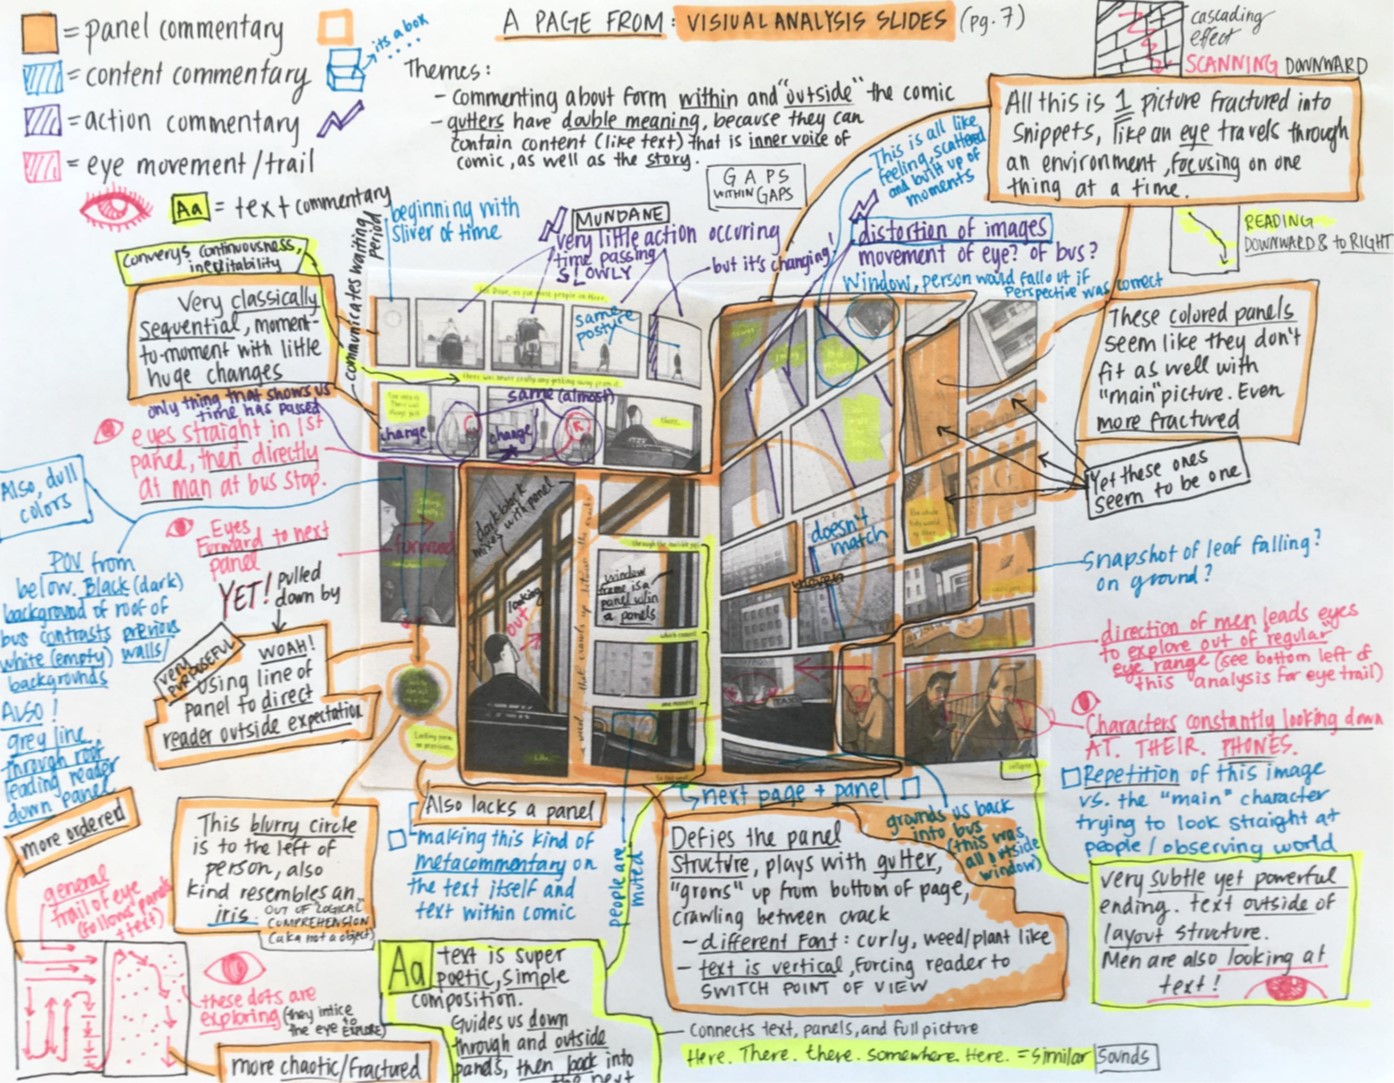 = panel commentary
= content commentary
= action commentary
= eye movement/trail
Aa = text commentary
its a box
A PAGE FROM: VISIUAL ANALYSIS SLIDES (pg. 7)
Themes:
- commenting about form within and "outside" the comic
- gutters have double meaning, because they can
contain content (like text) that is inner voice of
comic, as well as the story.
GAPS
WITHIN GAPS
cascading
effect
SCANNING DOWNWARD
All this is 1 picture fractured into
snippets, like an eye travels through
an environment, focusing on one
thing at a time.
This is all like
feeling, scattered
and built up of
moments
READING
DOWNWARD & to RIGHT
distortion of images
movement of eye? of bus?
Window, person would fall out if
Perspective was correct
beginning with
sliver of time
communicates waiting
period
MUNDANE
very little action occuring
time passing
SLOWLY
but it's changing!
same
posture
Converys continuousness,
inevitability
Very classically
sequential, moment-
to-moment with little
huge changes
only thing that shows us
time has passed
eyes straight in 1st
panel, then directly
at man at bus stop.
change
same (almost)
change
there was never really any getting away from it.
These colored panels
seem like they don't
fit as well with
"main" picture. Even
more fractured
Yet these ones
seem to be one
Also, dull
colors
Eyes
Forward to next
panel
forward
YET! pulled
down by
POV from
below. Black (dark)
background of roof of
bus contrasts previous
white (empty) walls/
backgrounds
Also!
grey line
through roof
leading reader
down panel
very
purposeful
WOAH!
Using line of
panel to direct
reader outside expectation
dark black
mixes with panel
looking
out
window
frame is a
panel w/in
a panels
doesn't
match
Snapshot of leaf falling?
on ground?
direction of men leads eyes
to explore out of "regular"
eye range (see bottom left of
this analysis for eye trail)
Characters constantly looking down
AT. THEIR. PHONES.
Repetition of this image
vs. the "main" character
trying to look straight at
people / observing world
more ordered
This blurry circle
is to the left of
person, also
kind resembles an
iris.
OUT OF LOGICAL
COMPREHENSION
(aka not a object)
Also lacks a panel
making this kind of
metacommentary on
the text itself and
text within comic
people are
muted
next page + panel
grounds us back
into bus
(this was
all outside
window)
Defies the panel
structure, plays with gutter,
"grows" up from bottom of page,
crawling between crack
- different font: curly, weed/plant like
- text is vertical, forcing reader to
SWITCH POINT OF VIEW
very subtle yet powerful
ending. text outside of
layout structure.
Men are also looking at
text!
general
trail of eye
(follows panels
+ text)
these dots are
exploring (they intice
the eye to EXPLORE)
more chaotic/fractured
Aa text is super
poetic, simple
composition.
Guides us down
through and outside
panels, then back into
the next
Connects text, panels, and full picture
Here. There. there. somewhere. Here. = similar sounds